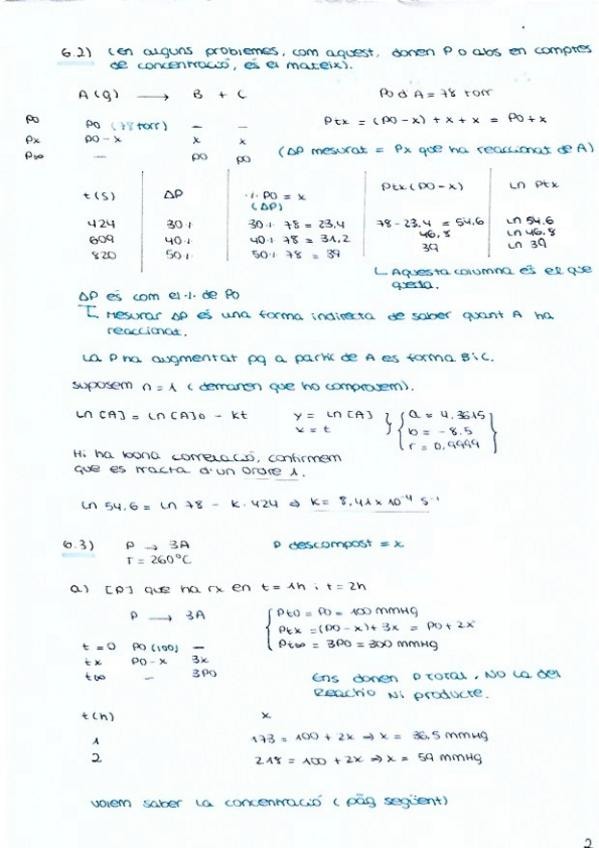 6.2) (en alguns problemes, com aquest, donen P o abs en comptes
de concentració, és el mateix).
A(g) → B + C P0 d A = 78 torr
P0 P0 (78 torr) — — Ptx = (P0-x) + x + x = P0+x
Px P0-x x x (ΔP mesurat = Px que ha reaccionat de A)
P∞ — P0 P0
t(s) ΔP ·/· P0 = x Ptx (P0-x) Ln Ptx
(ΔP)
424 30·/· 30·/· 78 = 23,4 78 - 23,4 = 54,6 Ln 54,6
609 40·/· 40·/· 78 = 31,2 46,8 Ln 46,8
820 50·/· 50·/· 78 = 39 39 Ln 39
Aquesta columna és el que
queda.
ΔP és com el ·/· de P0
Mesurar ΔP és una forma indirecta de saber quant A ha
reaccionat.
La P ha augmentat pq a partir de A es forma B i C.
Suposem n = 1 (demanen que ho comprovem).
Ln [A] = Ln [A]0 - kt y = Ln [A] a = 4,3615
x = t b = -8.5
r = 0,9999
Hi ha bona correlació, confirmem
que es tracta d'un ordre 1.
Ln 54,6 = Ln 78 - k·424 ⇒ k = 8,41x10⁻⁴ s⁻¹
6.3) P → 3A P descompost = x
T = 260°C
a) [P] que ha rx en t = 1h i t = 2h
P → 3A Pt0 = P0 = 100 mmHg
Ptx = (P0-x) + 3x = P0 + 2x
t = 0 P0 (100) — Pt∞ = 3P0 = 300 mmHg
tx P0-x 3x
t∞ — 3P0 Ens donen P total, NO la del
reactiu ni producte.
t(h) x
1 173 = 100 + 2x ⇒ x = 36,5 mmHg
2 218 = 100 + 2x ⇒ x = 59 mmHg
Volem saber la concentració (pàg següent)
2